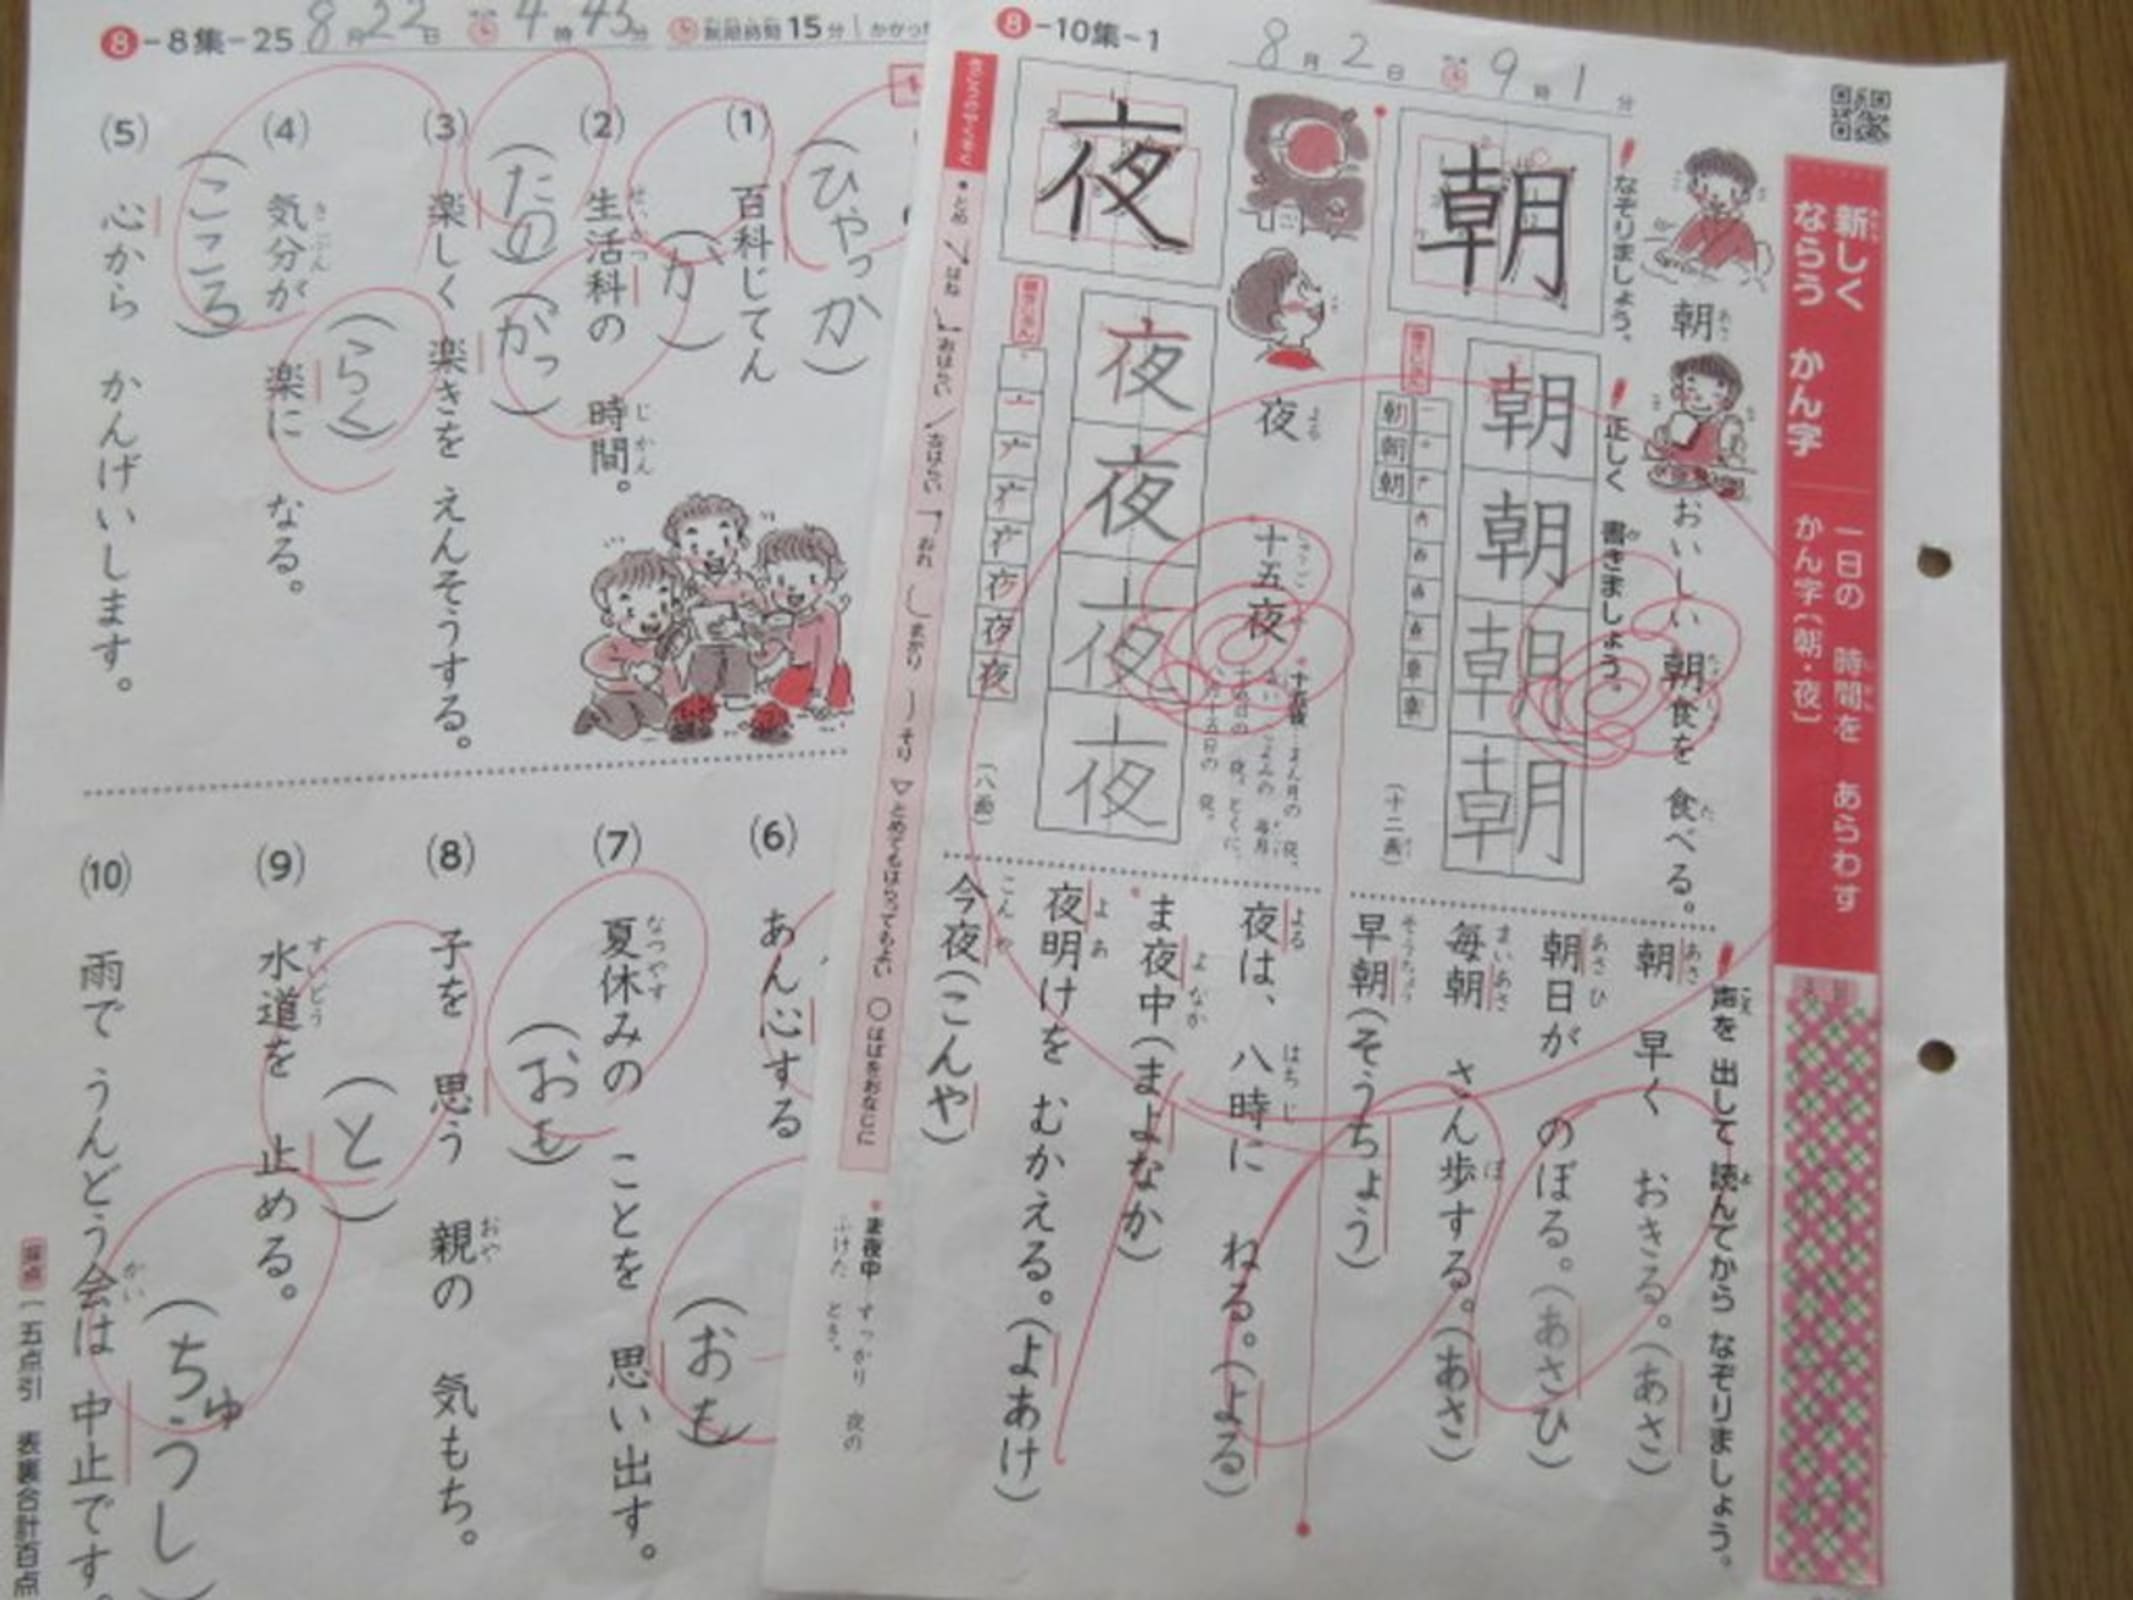 8-10集-1
8月2日 9時1分
新しく ならう かん字
一日の 時間を あらわす
かん字〔朝・夜〕
朝
おいしい 朝食を 食べる。
なぞりましょう。
正しく 書きましょう。
朝
朝
朝
朝
朝
(十二画)
夜
十五夜
夜
夜
夜
夜
夜
(八画)
声を 出して 読んでから なぞりましょう。
朝 早く おきる。(あさ)
朝日が のぼる。(あさひ)
毎朝 さん歩する。(あさ)
早朝(そうちょう)
夜は、八時に ねる。(よる)
ま夜中(まよなか)
夜明けを むかえる。(よあけ)
今夜(こんや)
ま夜中…すっかり 夜の
ふけた とき。
とめ はね おはらい おれ まがり そり ▽とめてもはらってもよい ○はばをおなじに
8-8集-25
8月22日 4時45分
制限時間15分
(1) 百科じてん
(ひゃっか)
(2) 生活科の 時間。
(か)
(3) 楽しく 楽きを えんそうする。
(たの)
(がっ)
(4) 気分が 楽に なる。
(らく)
(5) 心から かんげいします。
(こころ)
(6) あん心する
(7) 夏休みの ことを 思い出す。
(おも)
(8) 子を 思う 親の 気もち。
(おも)
(9) 水道を 止める。
(と)
(10) 雨で うんどう会は 中止です。
(ちゅうし)
採点 一五点引 表裏合計百点